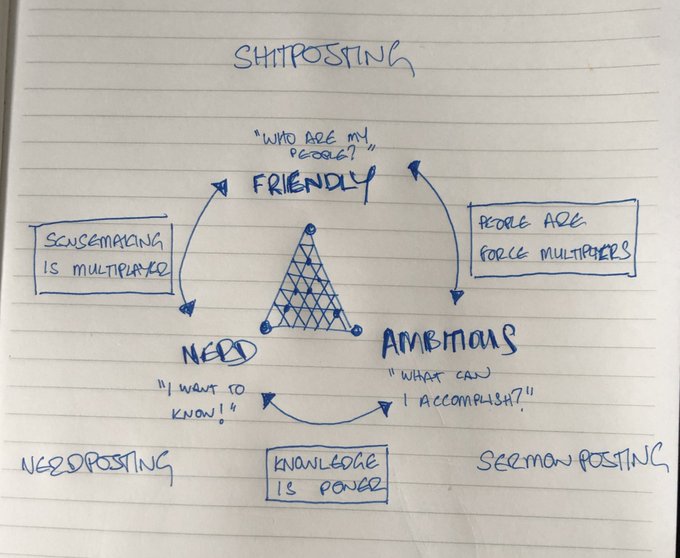 SHITPOSTING
"WHO ARE MY
PEOPLE?"
FRIENDLY
SENSEMAKING
IS MULTIPLAYER
PEOPLE ARE
FORCE MULTIPLIERS
NERD
"I WANT TO
KNOW!"
AMBITIOUS
"WHAT CAN
I ACCOMPLISH?"
NERDPOSTING
KNOWLEDGE
IS POWER
SERMONPOSTING